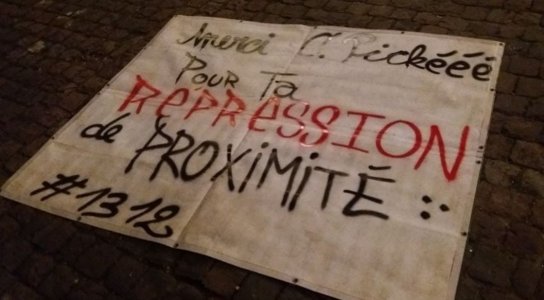 Merci C. Pickééé
Pour Ta
RePRESSION
de PROXiMiTÉ ::
#1312